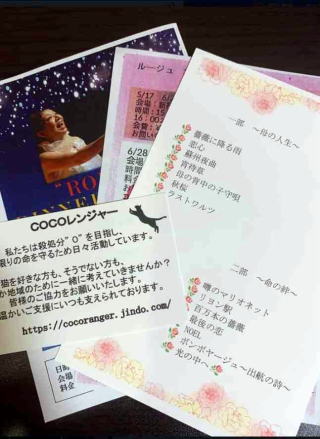 "RO
DINNE
ルージュ
5/17
会場：
時間：15
16：00
会費：
お問い
6/28
会場
時間
料金
日時
会場
料金
COCOレンジャー
私たちは殺処分"0"を目指し、
限りの命を守るため日々活動しています。
猫を好きな方も、そうでない方も、
か地域のために一緒に考えていきませんか？
皆様のご協力をお願いいたします。
温かいご支援にいつも支えられております。
https://cocoranger.jindo.com/
一部　～母の人生～
薔薇に降る雨
恋心
蘇州夜曲
宵待草
母の背中の子守唄
秋桜
ラストワルツ
二部　～命の絆～
噂のマリオネット
リヨン駅
百万本の薔薇
最後の恋
NOEL
ボンボヤージュ～出航の詩～
光の中へ